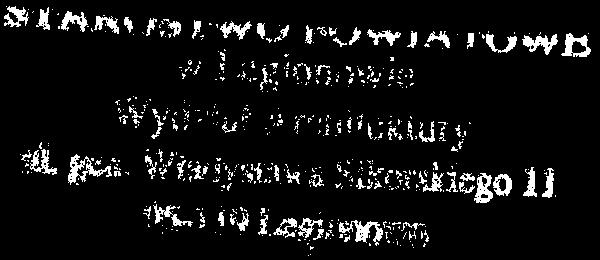 STAROSTWO POWIATOWE
w Legionowie
Wydział Architektury
ul. gen. Władysława Sikorskiego 11
05-119 Legionowo